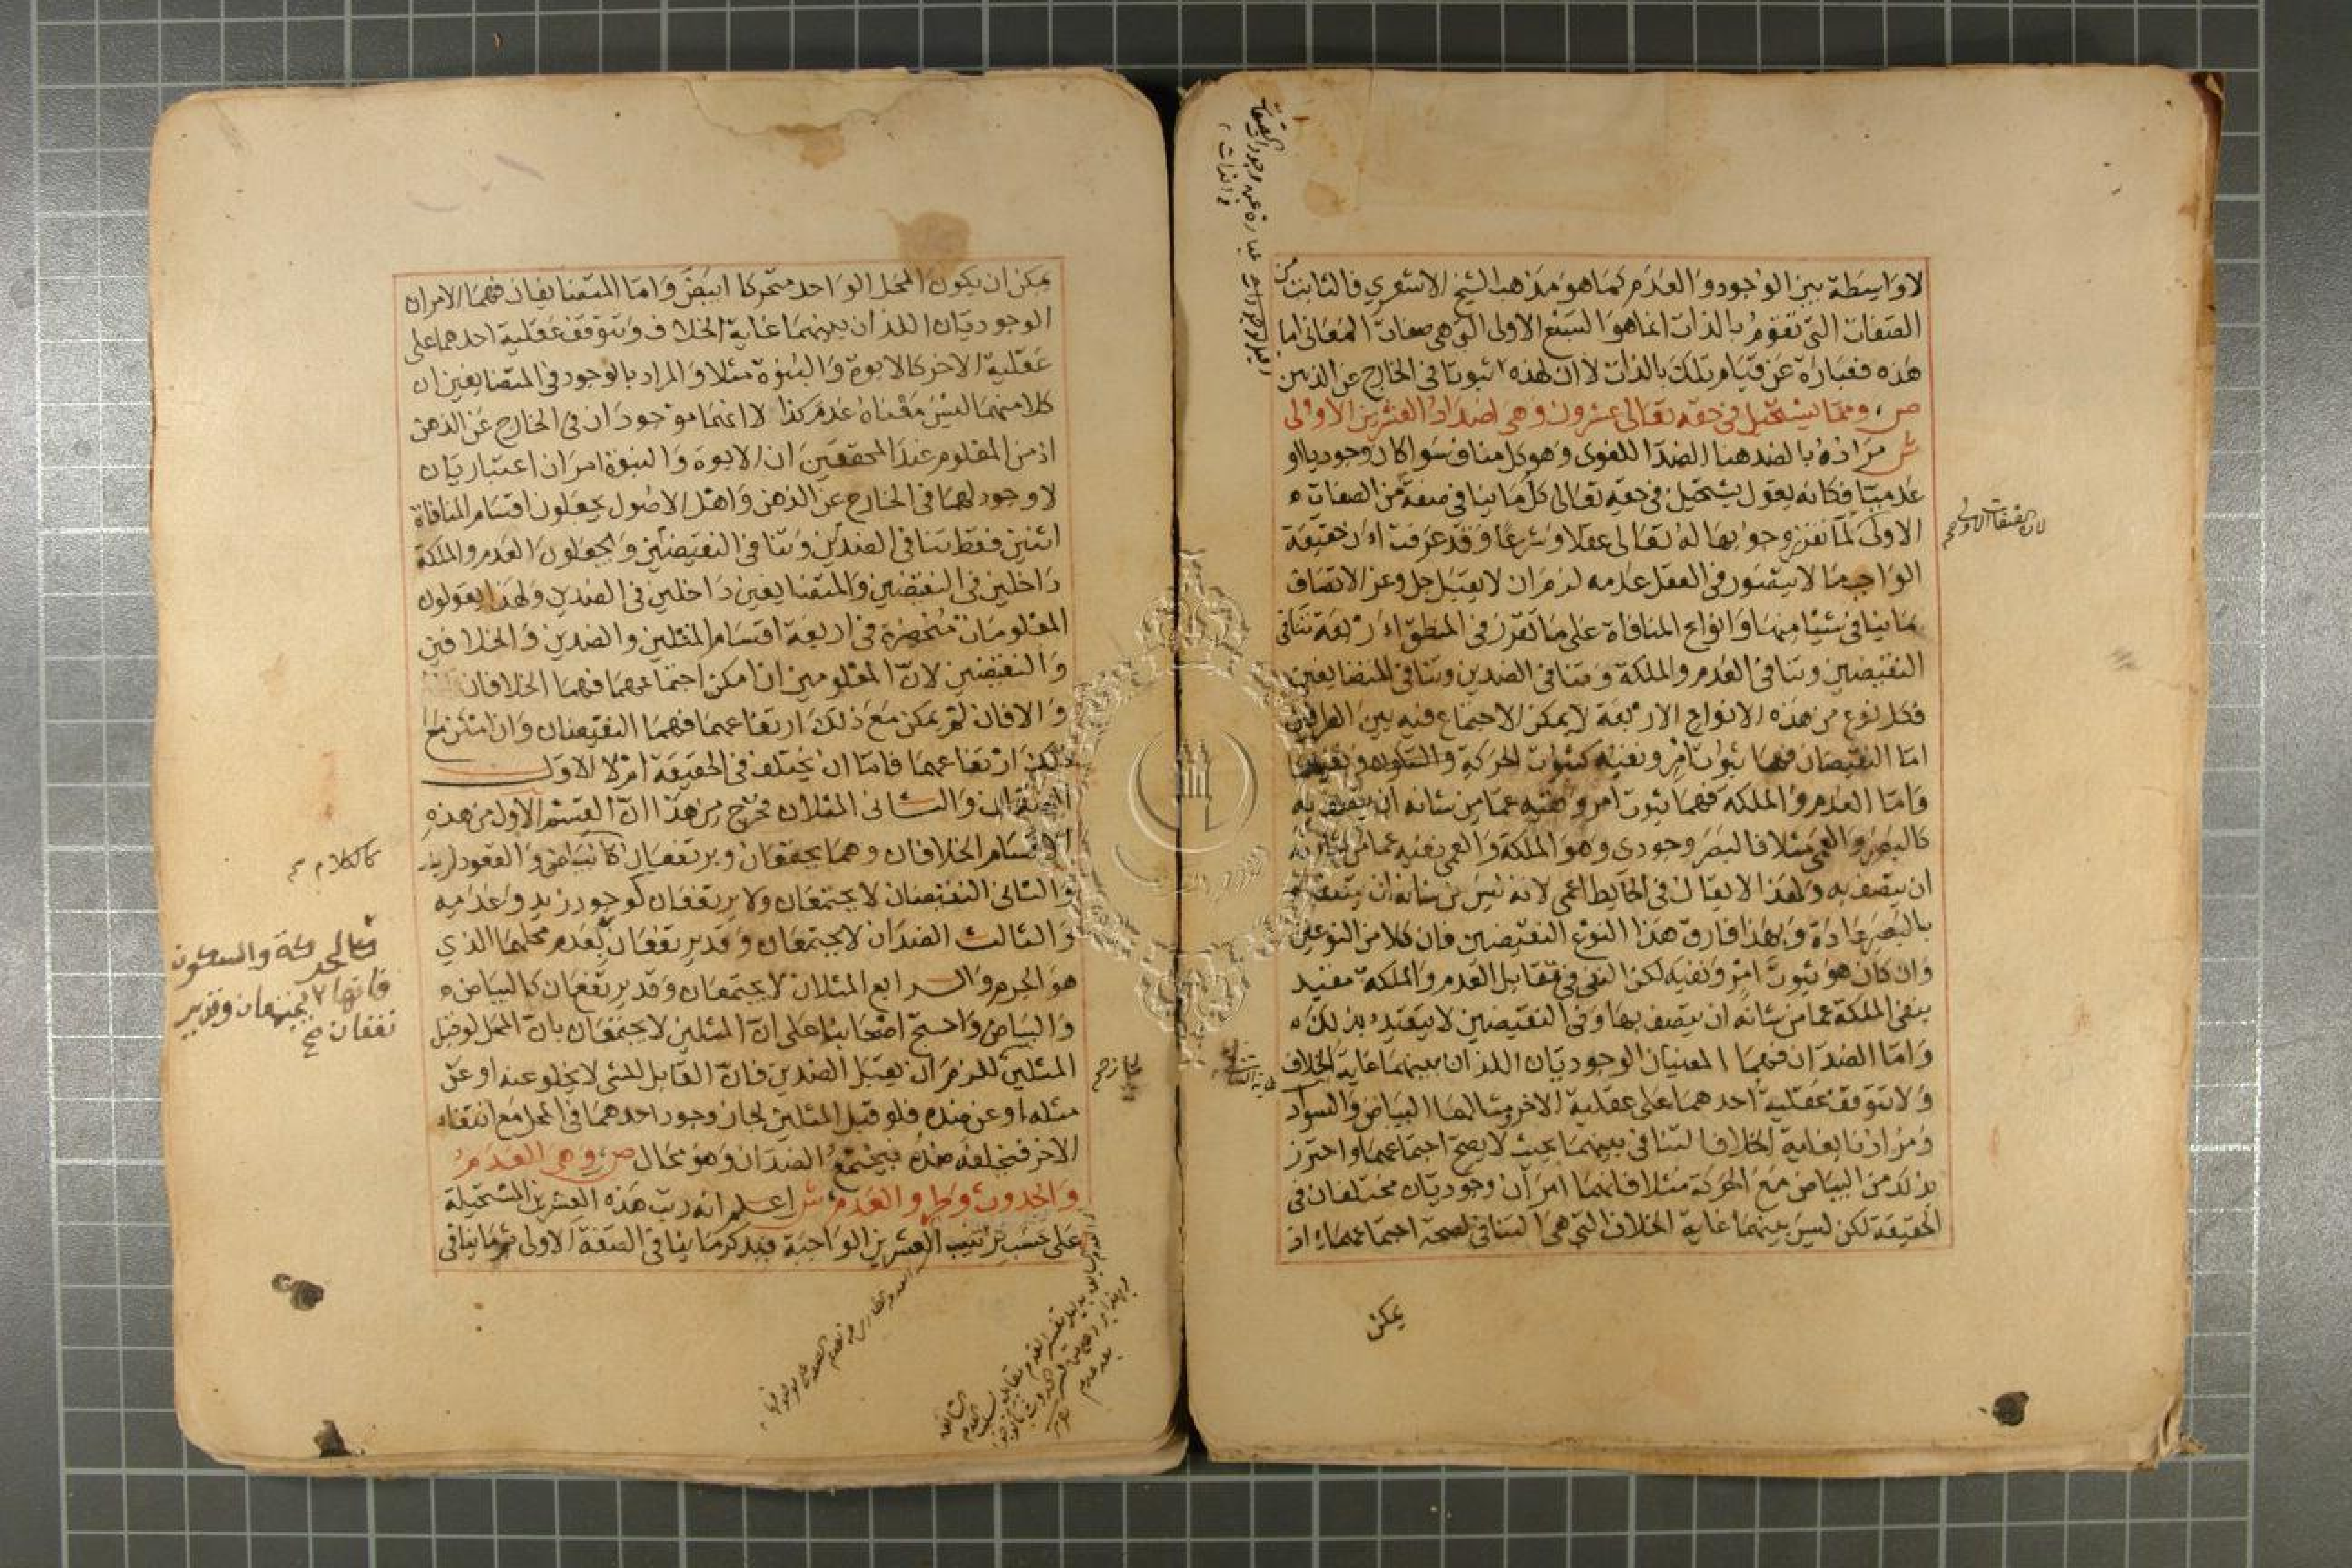 لا واسطة بين الوجود والعدم كما هو مذهب الشيخ الاشعري فالثابت من
الصفات التي تقوم بالذات انما هو السبع الاولى التي هي صفات المعاني اما
هذه فعبارة عن قيام تلك بالذات لا ان لهذه ثبوتا في الخارج عن الذهن
ص ومما يستحيل في حقه تعالى عشرون وهي اضداد العشرين الاولى
ش مراده بالضد هنا الضد اللغوي وهو كل مناف سوا كان وجوديا او
عدميا فكانه يقول يستحيل في حقه تعالى كل ما ينافي صفة من الصفات
الاولى لما تقرر وجوبها له تعالى عقلا وشرعا وقد عرفت ان حقيقة
الواجب ما لا يتصور في العقل عدمه لزم ان لا يقبل جل وعز الاتصاف
بما ينافي شيئا منها وانواع المنافاة على ما تقرر في المنطق اربعة تنافي
النقيضين وتنافي العدم والملكة وتنافي الضدين وتنافي المتضايفين
فكل نوع من هذه الانواع الاربعة لا يمكن الاجتماع فيه بين الطرفين
اما النقيضان فهما ثبوت امر ونفيه كثبوت الحركة والسكون ونفيهما
واما العدم والملكه فهما ثبوت امر ونفيه عما من شانه ان يتصف به
كالبصر والعمى مثلا فالبصر وجودي وهو الملكة والعمى نفيه عما من شانه
ان يتصف به ولهذا لا يقال في الحايط اعمى لانه ليس من شانه ان يتصف
بالبصر عادة وبهذا فارق هذا النوع النقيضين فان كلا من النوعين
وان كان هو ثبوت امر ونفيه لكن النفي في تقابل العدم والملكة مقيد
بنفي الملكة عما من شانه ان يتصف بها وفي النقيضين لا يتقيد بذلك
واما الضدان فهما المعنيان الوجوديان اللذان بينهما غاية الخلاف
ولا تتوقف عقلية احدهما على عقلية الاخر ومثالهما البياض والسواد
ومرادنا بغاية الخلاف التنافي بينهما بحيث لا يصح اجتماعهما واحترز
بذلك من البياض مع الحركة مثلا فانهما امران وجوديان مختلفان في
الحقيقة لكن ليس بينهما غاية الخلاف التي هي التنافي لصحة اجتماعهما اذ
يمكن
لان الصفات الاولى صح
يمكن ان يكون المحل الواحد متحركا ابيض واما المتضايفان فهما الامران
الوجوديان اللذان بينهما غاية الخلاف وتتوقف عقلية احدهما على
عقلية الاخر كالابوة والبنوة مثلا والمراد بالوجود في المتضايفين ان
كلا منهما ليس معناه عدم كذا لا انهما موجودان في الخارج عن الذهن
اذ من المعلوم عند المحققين ان الابوة والبنوة امران اعتباريان
لا وجود لهما في الخارج عن الذهن واهل الاصول يجعلون اقسام المنافاة
اثنين فقط تنافي الضدين وتنافي النقيضين ويجعلون العدم والملكة
داخلين في النقيضين والمتضايفين داخلين في الضدين ولهذا يقولون
المعلومات منحصرة في اربعة اقسام المثلين والضدين والخلافين
والنقيضين لان المعلومين ان امكن اجتماعهما فهما الخلافان
والا فان لم يمكن مع ذلك ارتفاعهما فهما النقيضان وان امكن مع
ذلك ارتفاعهما فاما ان يختلف في الحقيقة ام لا الاول
الضدان والثاني المثلان فخرج من هذا ان القسم الاول من هذه
الاقسام الخلافان وهما يجتمعان ويرتفعان كالبياض والقعود لزيد
والثاني النقيضان لا يجتمعان ولا يرتفعان كوجود زيد وعدمه
والثالث الضدان لا يجتمعان وقد يرتفعان بعدم محلهما الذي
هو الجرم والرابع المثلان لا يجتمعان وقد يرتفعان كالبياض
والبياض واحتج اصحابنا على ان المثلين لا يجتمعان بان المحل لو قبل
المثلين للزم ان يقبل الضدين فان القابل للشي لا يخلو عنه او عن
مثله او عن ضده فلو قبل المثلين لجاز وجود احدهما في المحل مع انتفاء
الاخر فيخلفه ضده فيجتمع الضدان وهو محال ص وهي العدم
والحدوث وطرو العدم ش اعلم انه رتب هذه العشرين المستحيلة
على حسب ترتيب العشرين الواجبة فيذكر ما ينافي الصفة الاولى ثم ما ينافي
كالكلام
كالحركة والسكون
فانهما لا يجتمعان وقد ير
تفعان صح